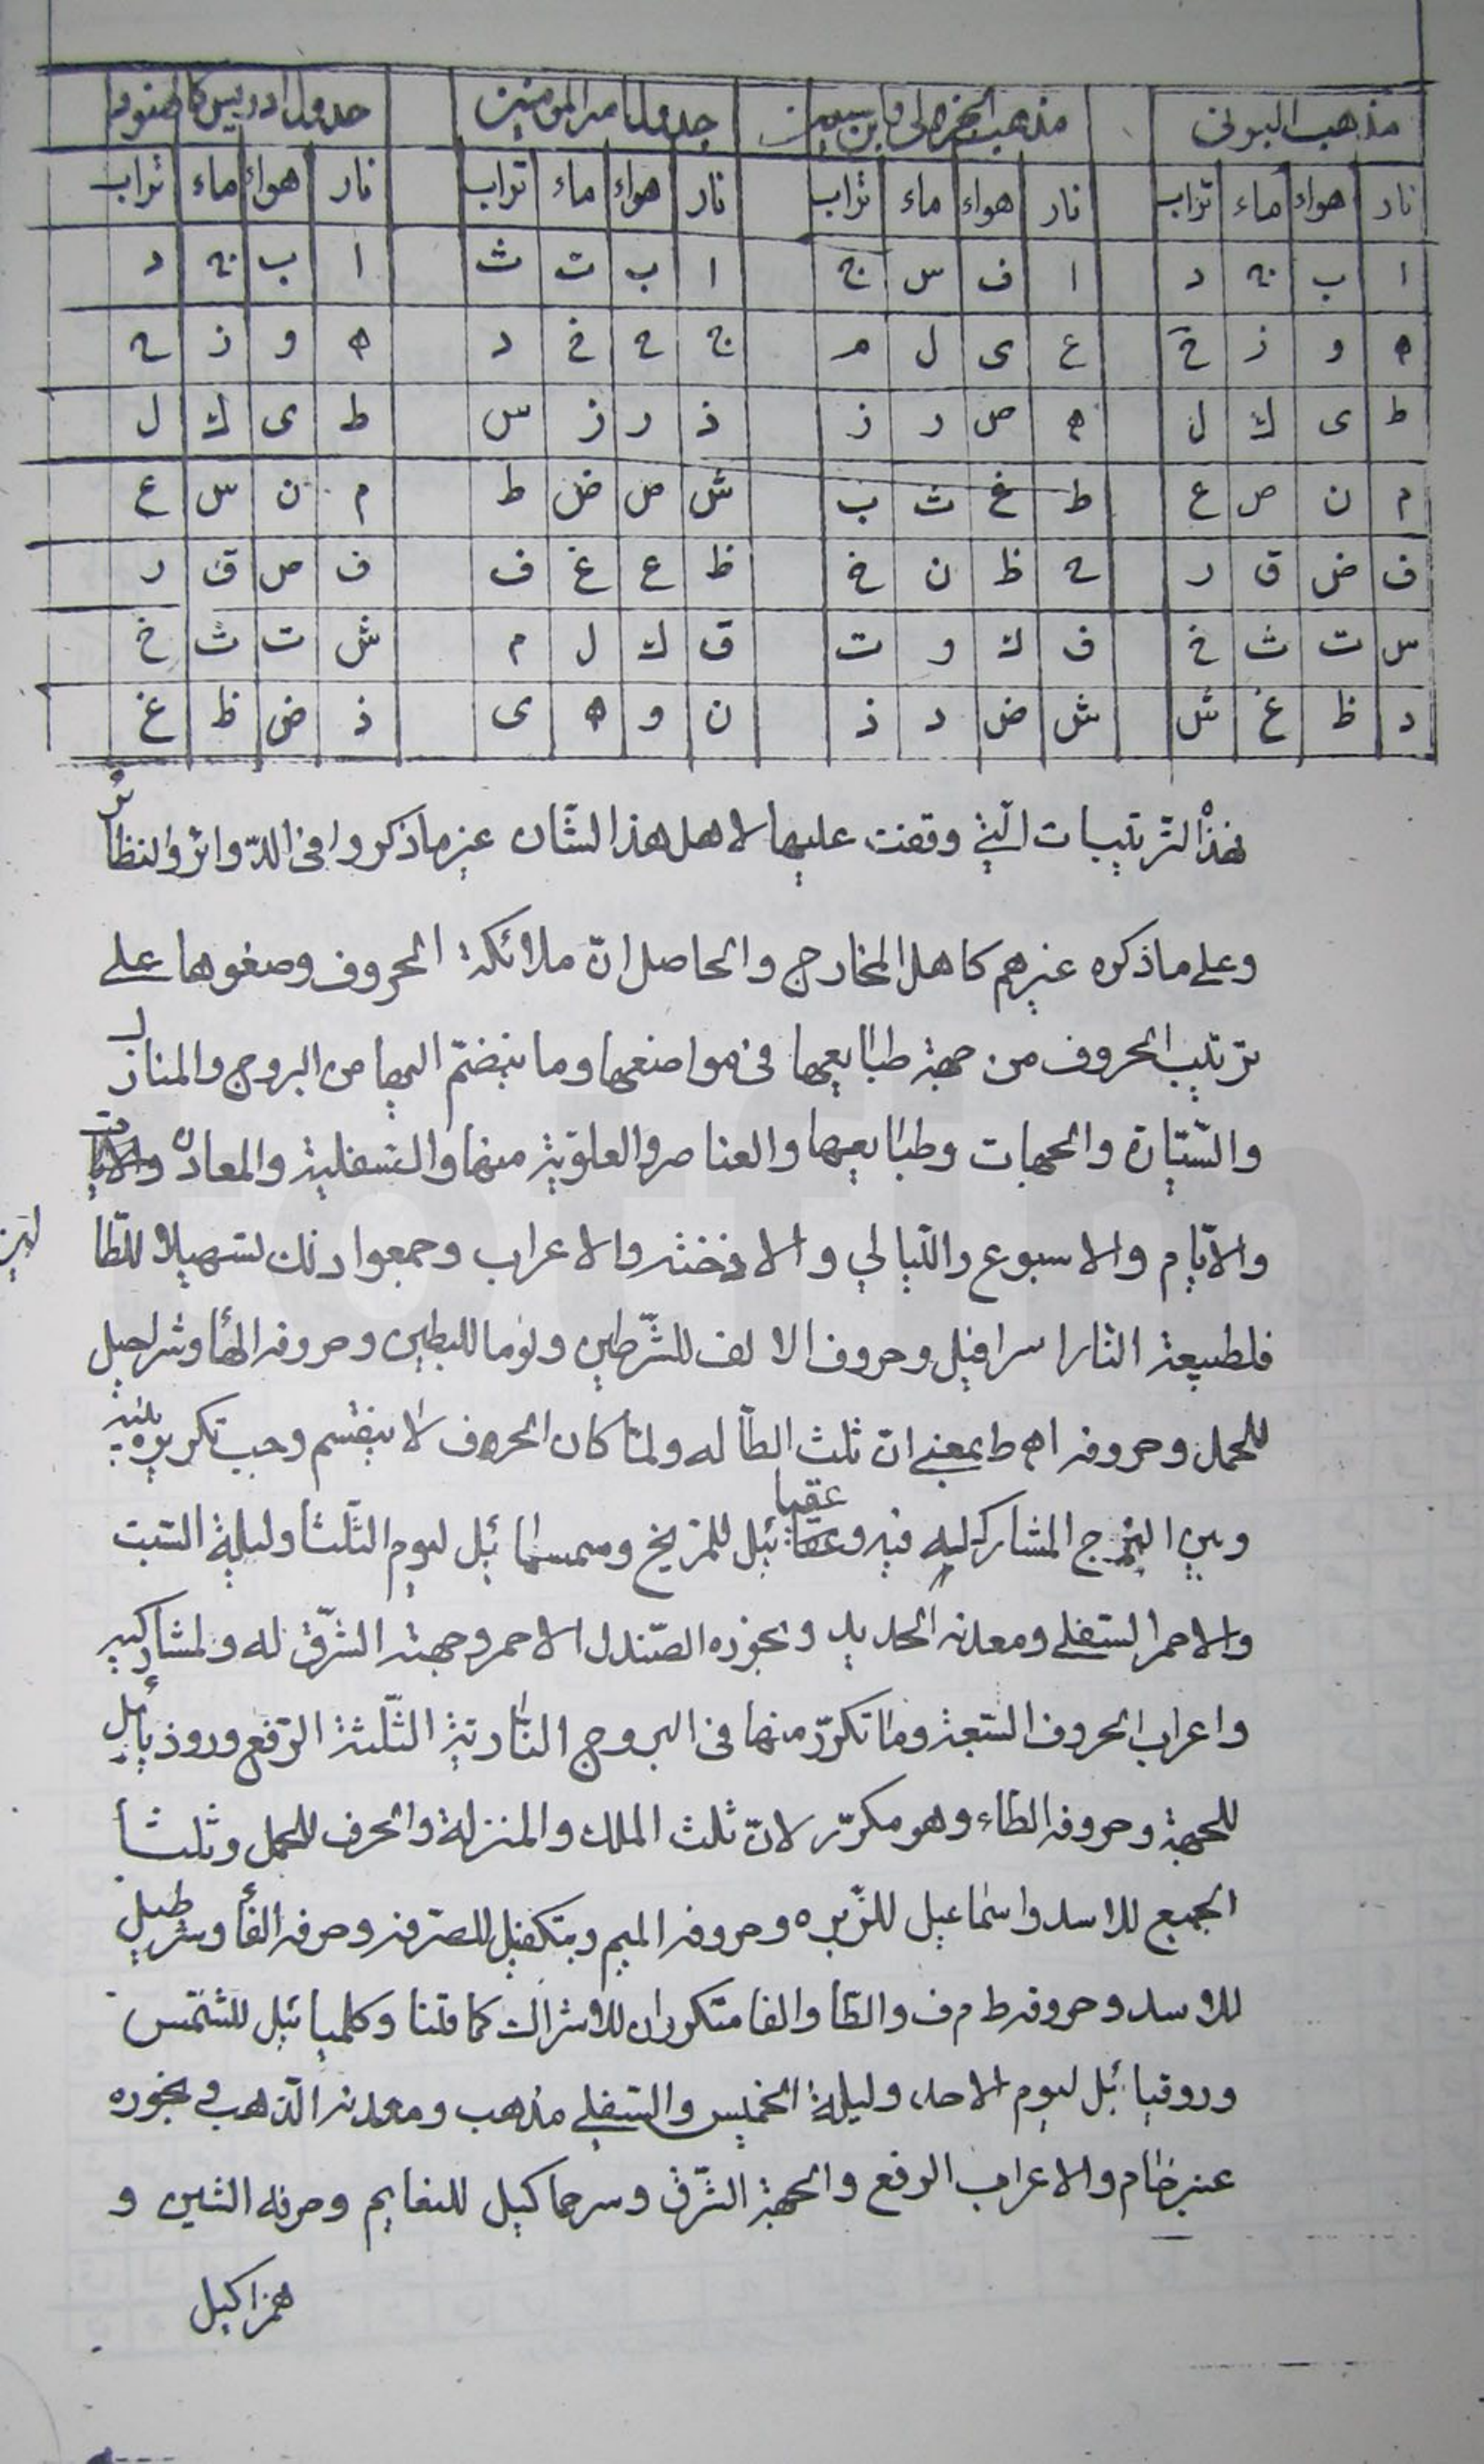 مذهب البونى مذهب جدول امير المومنين جدول ادريس
نار هواء ماء تراب نار هواء ماء تراب نار هواء ماء تراب نار هواء ماء تراب
ا ب ج د ا ف س ج ا ب ت ث ا ب ج د
ه و ز ح ع ى ل م ج ح خ د ه و ز ح
ط ى ك ل ه ص ر ز ذ ر ز س ط ى ك ل
م ن ص ع ط غ ث ب ش ص ض ط م ن س ع
ف ض ق ر ح ظ ن خ ظ ع غ ف ف ص ق ر
س ت ث خ ق ك و ت ق ك ل م ش ت ث خ
د ظ غ ش ش ض د ذ ن و ه ى ذ ض ظ غ
فهذه الترتيبات التى وقفت عليها لاهل هذا الشان غير ما ذكروا فى الدوائر والنظائر
وعلى ما ذكره غيرهم كاهل المخارج والحاصل ان ملائكة الحروف وصفوها على
ترتيب الحروف من جهة طبايعها فى مواضعها وما ينضم اليها من البروج والمنازل
والسيارة والجهات وطبايعها والعناصر والعلوية منها والسفلية والمعادن
والايام والاسبوع والليالي والادخنة والاعراب وجمعوا ذلك تسهيلا للطالبين
فلطبيعة النار اسرافيل وحروف الالف للشرطين ونوما للبطين وحروفه الهاء وشراحيل
للحمل وحروفه اه ط بمعنى ان ثلث الطا له ولما كان الحروف لا ينقسم وجب تكريره بينه
وبين البرج المشارك ليه فيه و عقيائيل للمريخ وسمسمائيل ليوم الثلثا وليلة السبت
والاحمر السفلى ومعدنه الحديد وبخوره الصندل الاحمر وجهته الشرق له ولمشاركيه
واعراب الحروف السبعة وما تكرر منها فى البروج النارية الثلثة الرفع وروذيائيل
للجبهة وحروفه الطاء وهو مكرر لان ثلث الملك والمنزلة والحرف للحمل وثلثا
الجميع للاسد واسماعيل للزبره وحروفه الميم وبتكفيل للصرفه وحرفه الفا وشرطيل
للاسد وحروفه ط م ف والطا والفا متكرران للاشراك كما قلنا وكلميائيل للشمس
وروقيائيل ليوم الاحد وليلة الخميس والسفلى مذهب ومعدنه الذهب و بخوره
عنبر خام والاعراب الرفع والجهة الشرق وسرحماكيل للنعايم وحرفه الشين و
همزاكيل